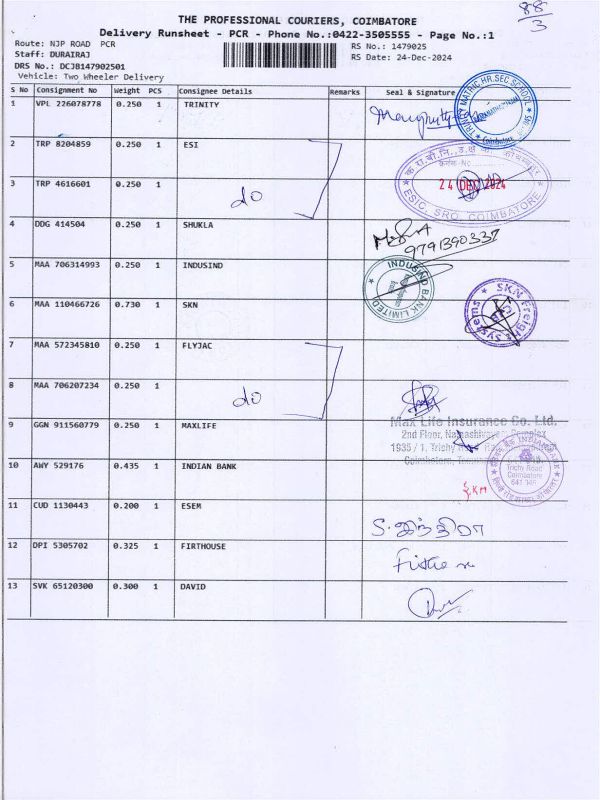 88
3
THE PROFESSIONAL COURIERS, COIMBATORE
Delivery Runsheet - PCR - Phone No.:0422-3505555 - Page No.:1
Route: NJP ROAD PCR
RS No.: 1479025
Staff: DURAIRAJ
RS Date: 24-Dec-2024
DRS No.: DCJB147902501
Vehicle: Two Wheeler Delivery
S No Consignment No Weight PCS Consignee Details Remarks Seal & Signature
1 VPL 226078778 0.250 1 TRINITY
TRINITY MATRIC.HR.SEC.SCHOOL
Coimbatore
2 TRP 8204859 0.250 1 ESI
3 TRP 4616601 0.250 1 do
24 DEC 2024
ESIC, SRO, COIMBATORE
4 DDG 414504 0.250 1 SHUKLA
9791390337
5 MAA 706314993 0.250 1 INDUSIND
INDUSIND BANK LIMITED
6 MAA 110466726 0.730 1 SKN
SKN Freight Systems
7 MAA 572345810 0.250 1 FLYJAC
8 MAA 706207234 0.250 1 do
9 GGN 911560779 0.250 1 MAXLIFE
Max Life Insurance Co. Ltd.
2nd Floor, Complex
1935 / 1, Trichy
Coimbatore,
10 AWY 529176 0.435 1 INDIAN BANK
INDIAN BANK
Trichy Road
Coimbatore
641
11 CUD 1130443 0.200 1 ESEM
S. இந்திரா
12 DPI 5305702 0.325 1 FIRTHOUSE
13 SVK 65120300 0.300 1 DAVID